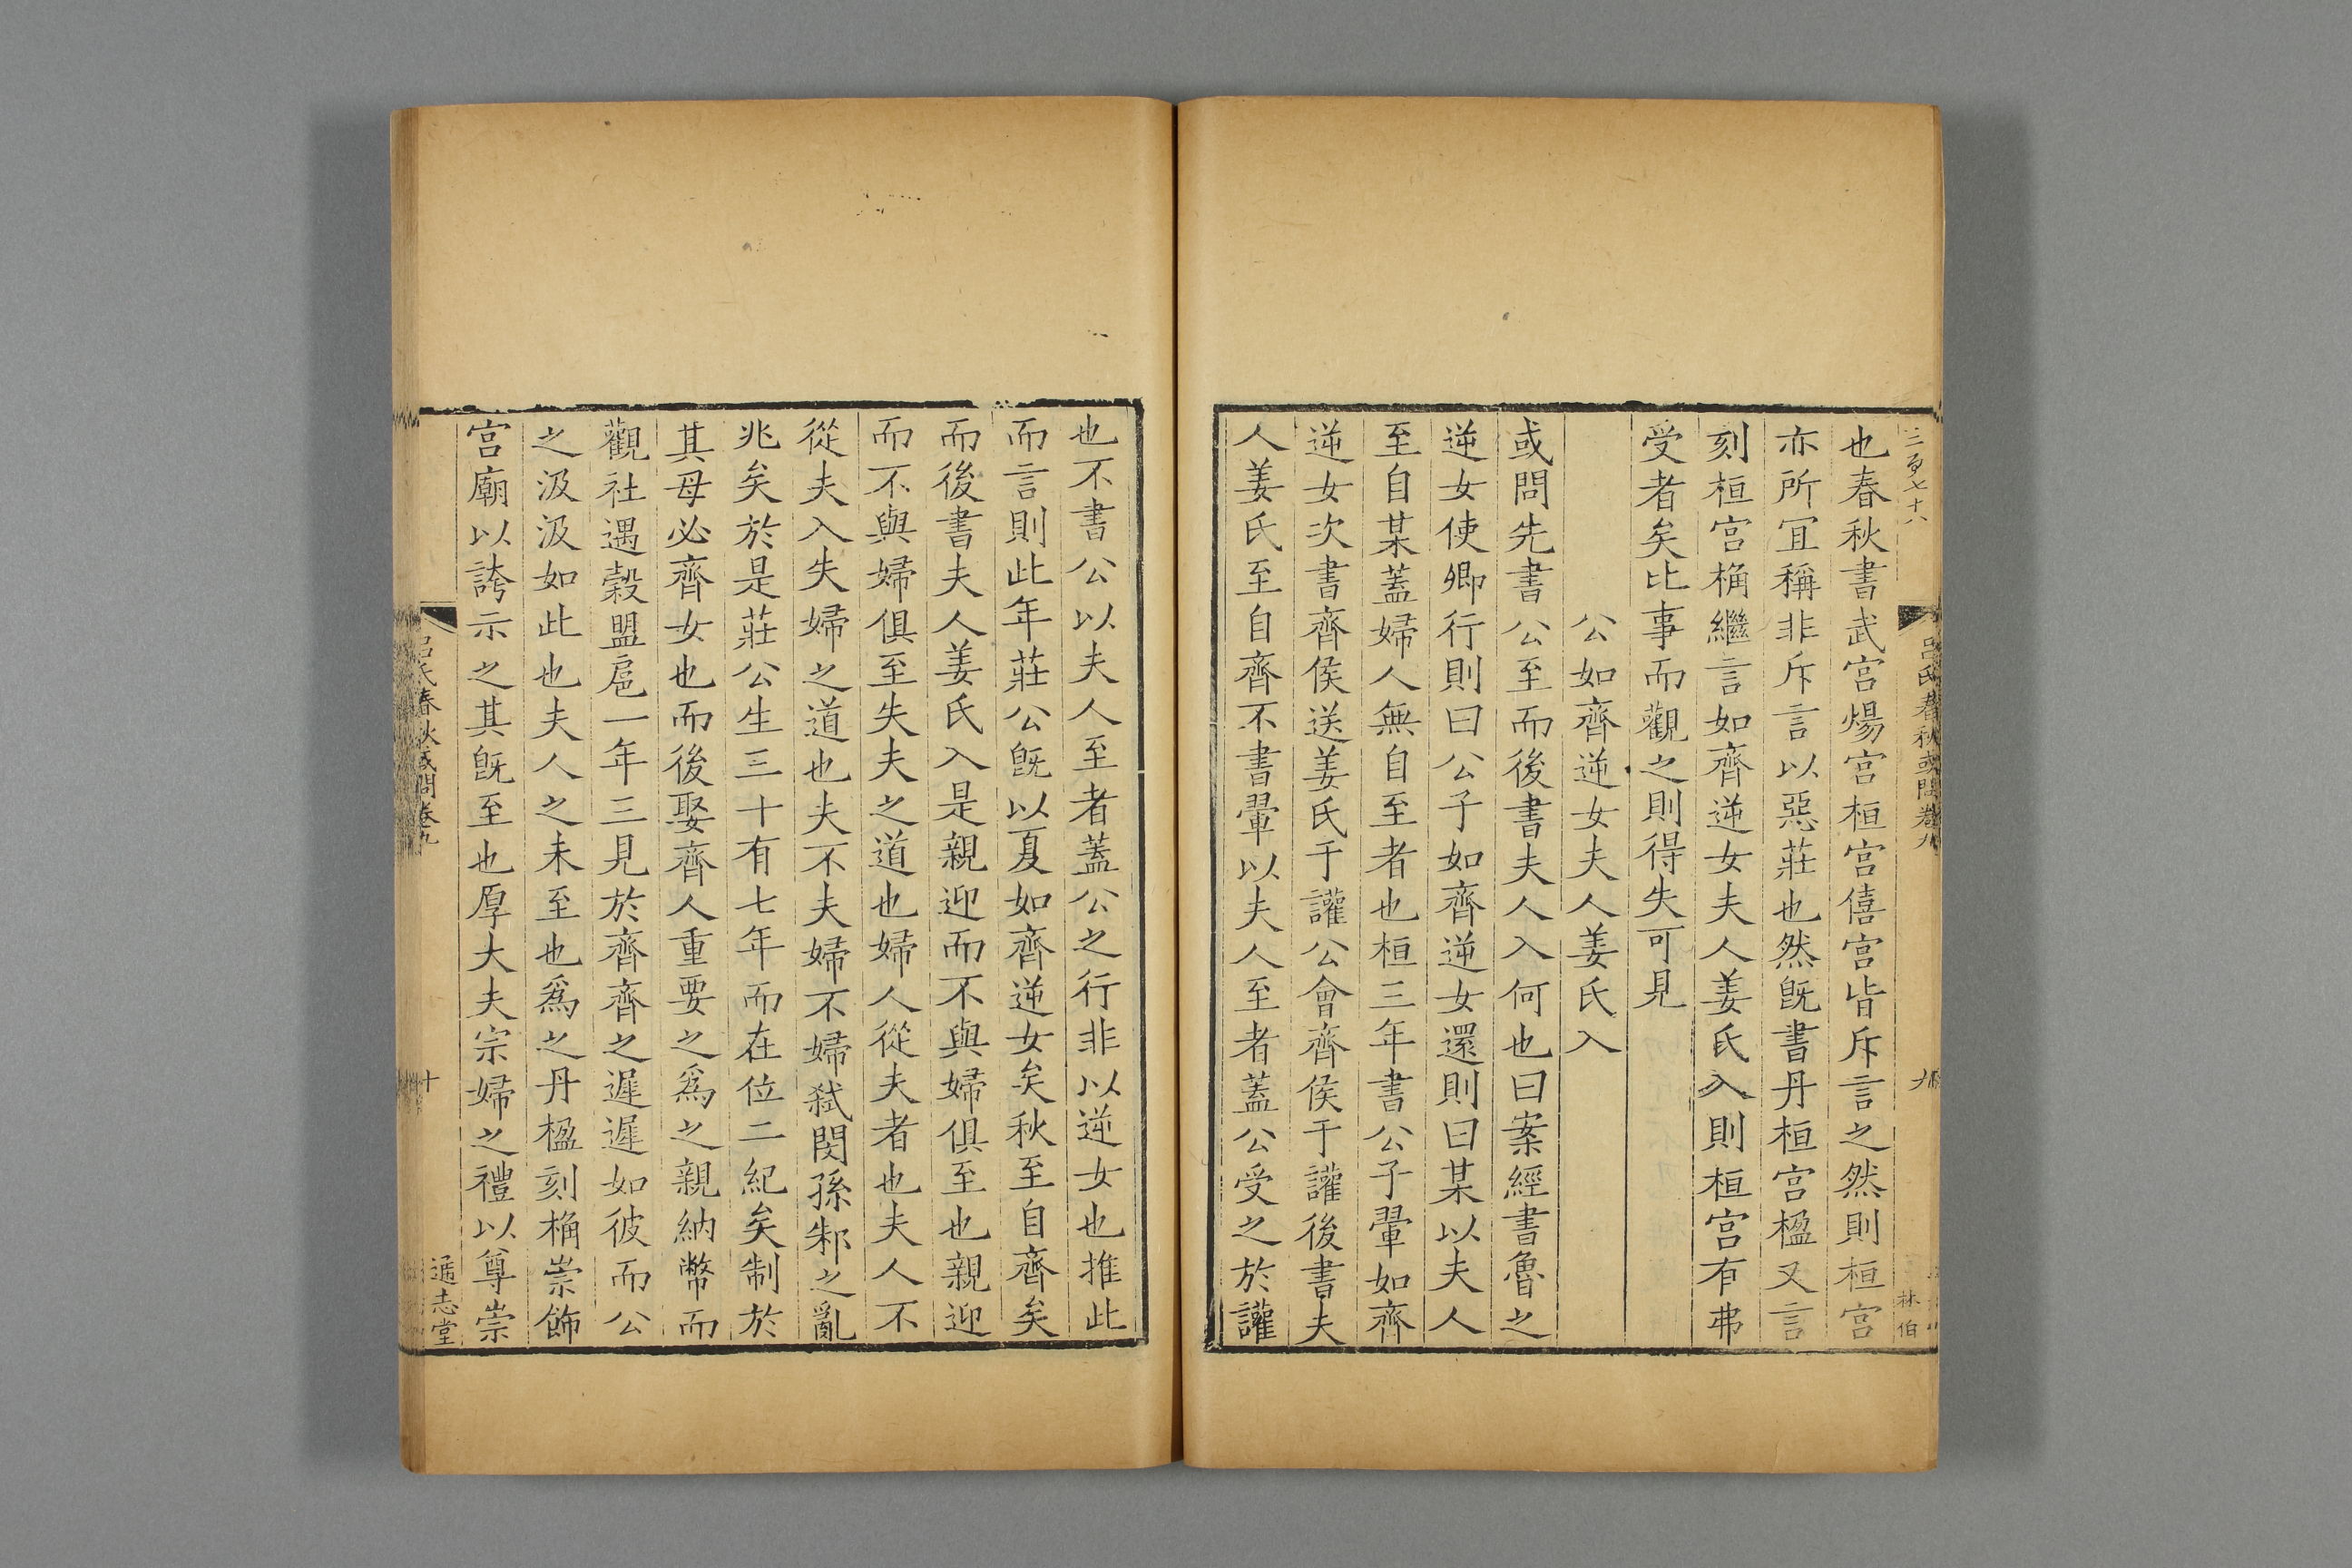 三百七十八
呂氏春秋或問卷九
九
林伯
也春秋書武宮煬宮桓宮僖宮皆斥言之然則桓宮
亦所宜稱非斥言以惡莊也然旣書丹桓宮楹又言
刻桓宮桷繼言如齊逆女夫人姜氏入則桓宮有弗
受者矣比事而觀之則得失可見
公如齊逆女夫人姜氏入
或問先書公至而後書夫人入何也曰案經書魯之
逆女使卿行則曰公子如齊逆女還則曰某以夫人
至自某蓋婦人無自至者也桓三年書公子翬如齊
逆女次書齊侯送姜氏于讙公會齊侯于讙後書夫
人姜氏至自齊不書翬以夫人至者蓋公受之於讙
也不書公以夫人至者蓋公之行非以逆女也推此
而言則此年莊公旣以夏如齊逆女矣秋至自齊矣
而後書夫人姜氏入是親迎而不與婦俱至也親迎
而不與婦俱至失夫之道也婦人從夫者也夫人不
從夫入失婦之道也夫不夫婦不婦弑閔孫邾之亂
兆矣於是莊公生三十有七年而在位二紀矣制於
其母必齊女也而後娶齊人重要之爲之親納幣而
觀社遇穀盟扈一年三見於齊齊之遲遲如彼而公
之汲汲如此也夫人之未至也爲之丹楹刻桷崇飾
宮廟以誇示之其旣至也厚大夫宗婦之禮以尊崇
呂氏春秋或問卷九
十
通志堂